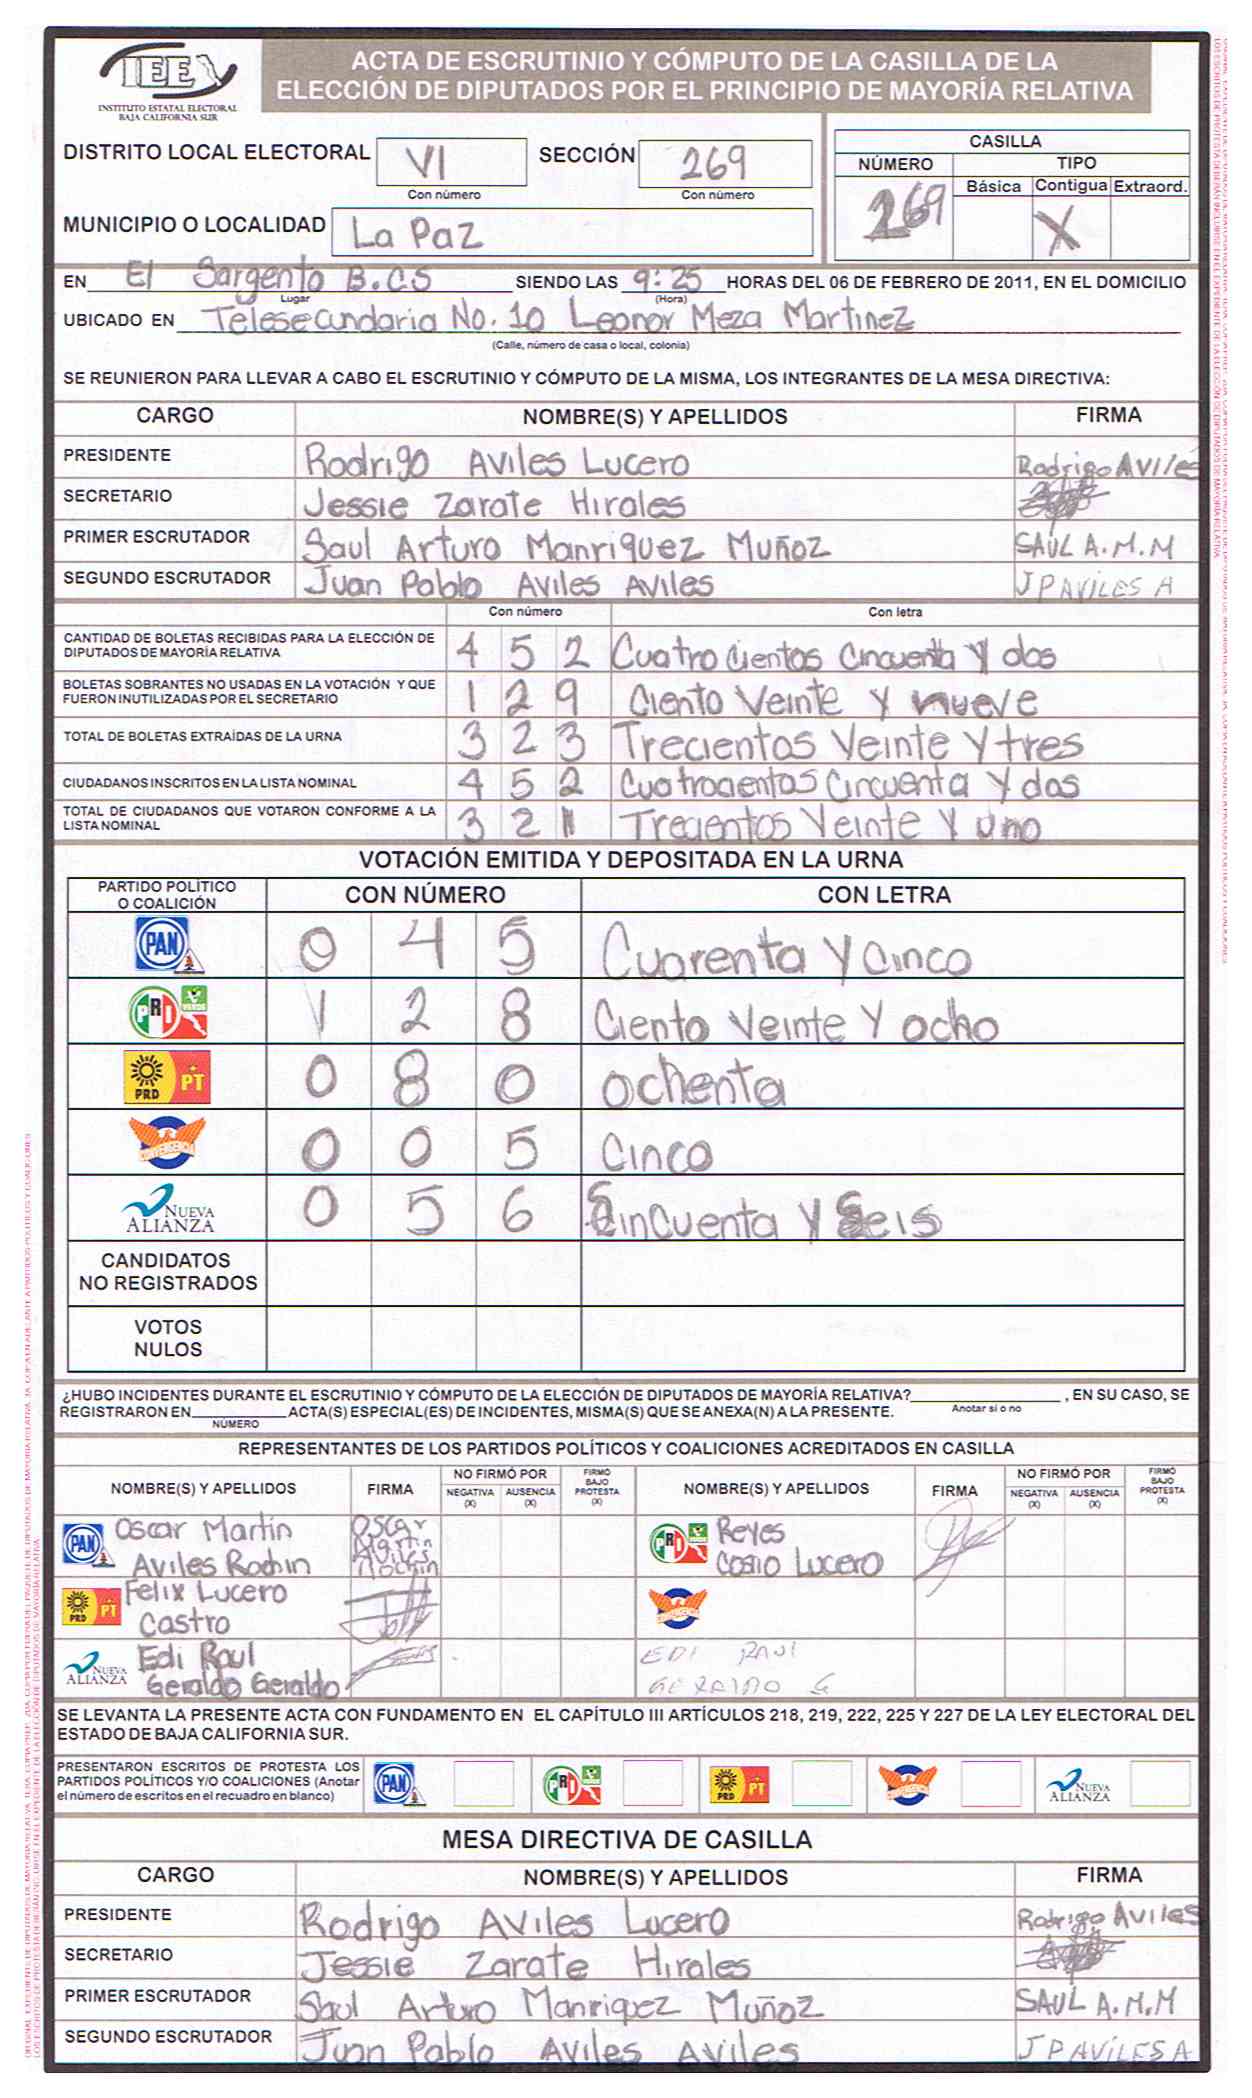 IEE
INSTITUTO ESTATAL ELECTORAL
BAJA CALIFORNIA SUR
ACTA DE ESCRUTINIO Y CÓMPUTO DE LA CASILLA DE LA
ELECCIÓN DE DIPUTADOS POR EL PRINCIPIO DE MAYORÍA RELATIVA
DISTRITO LOCAL ELECTORAL VI SECCIÓN 269
Con número Con número
CASILLA
NÚMERO TIPO
Básica Contigua Extraord.
269 X
MUNICIPIO O LOCALIDAD La Paz
EN El Sargento B.C.S SIENDO LAS 9:25 HORAS DEL 06 DE FEBRERO DE 2011, EN EL DOMICILIO
Lugar (Hora)
UBICADO EN Telesecundaria No. 10 Leonor Meza Martinez
(Calle, número de casa o local, colonia)
SE REUNIERON PARA LLEVAR A CABO EL ESCRUTINIO Y CÓMPUTO DE LA MISMA, LOS INTEGRANTES DE LA MESA DIRECTIVA:
CARGO NOMBRE(S) Y APELLIDOS FIRMA
PRESIDENTE Rodrigo Aviles Lucero Rodrigo Aviles
SECRETARIO Jessie Zarate Hirales
PRIMER ESCRUTADOR Saul Arturo Manriquez Muñoz SAUL A.M.M
SEGUNDO ESCRUTADOR Juan Pablo Aviles Aviles J P AVILES A
Con número Con letra
CANTIDAD DE BOLETAS RECIBIDAS PARA LA ELECCIÓN DE
DIPUTADOS DE MAYORÍA RELATIVA 4 5 2 Cuatro cientos cincuenta y dos
BOLETAS SOBRANTES NO USADAS EN LA VOTACIÓN Y QUE
FUERON INUTILIZADAS POR EL SECRETARIO 1 2 9 Ciento Veinte y nueve
TOTAL DE BOLETAS EXTRAÍDAS DE LA URNA 3 2 3 Trecientos Veinte y tres
CIUDADANOS INSCRITOS EN LA LISTA NOMINAL 4 5 2 Cuatrocientos Circuenta y dos
TOTAL DE CIUDADANOS QUE VOTARON CONFORME A LA
LISTA NOMINAL 3 2 1 Trecientos Veinte y uno
VOTACIÓN EMITIDA Y DEPOSITADA EN LA URNA
PARTIDO POLÍTICO
O COALICIÓN CON NÚMERO CON LETRA
PAN 0 4 5 Cuarenta y cinco
PRI VERDE 1 2 8 Ciento Veinte y ocho
PRD PT 0 8 0 ochenta
CONVERGENCIA 0 0 5 Cinco
NUEVA ALIANZA 0 5 6 Cincuenta y Seis
CANDIDATOS
NO REGISTRADOS
VOTOS
NULOS
¿HUBO INCIDENTES DURANTE EL ESCRUTINIO Y CÓMPUTO DE LA ELECCIÓN DE DIPUTADOS DE MAYORÍA RELATIVA? , EN SU CASO, SE
Anotar si o no
REGISTRARON EN ACTA(S) ESPECIAL(ES) DE INCIDENTES, MISMA(S) QUE SE ANEXA(N) A LA PRESENTE.
NÚMERO
REPRESENTANTES DE LOS PARTIDOS POLÍTICOS Y COALICIONES ACREDITADOS EN CASILLA
NOMBRE(S) Y APELLIDOS FIRMA NO FIRMÓ POR NEGATIVA (X) AUSENCIA (X) FIRMÓ BAJO PROTESTA (X) NOMBRE(S) Y APELLIDOS FIRMA NO FIRMÓ POR NEGATIVA (X) AUSENCIA (X) FIRMÓ BAJO PROTESTA (X)
PAN Oscar Martin Aviles Rochin Oscar Martin Aviles Rochin PRI VERDE Reyes Cosio Lucero
PRD PT Felix Lucero Castro CONVERGENCIA
NUEVA ALIANZA Edi Raul Geraldo Geraldo EDI RAUL GERALDO G
SE LEVANTA LA PRESENTE ACTA CON FUNDAMENTO EN EL CAPÍTULO III ARTÍCULOS 218, 219, 222, 225 Y 227 DE LA LEY ELECTORAL DEL
ESTADO DE BAJA CALIFORNIA SUR.
PRESENTARON ESCRITOS DE PROTESTA LOS
PARTIDOS POLÍTICOS Y/O COALICIONES (Anotar
el número de escritos en el recuadro en blanco)
PAN PRI VERDE PRD PT CONVERGENCIA NUEVA ALIANZA
MESA DIRECTIVA DE CASILLA
CARGO NOMBRE(S) Y APELLIDOS FIRMA
PRESIDENTE Rodrigo Aviles Lucero Rodrigo Aviles
SECRETARIO Jessie Zarate Hirales
PRIMER ESCRUTADOR Saul Arturo Manriquez Muñoz SAUL A.M.M
SEGUNDO ESCRUTADOR Juan Pablo Aviles Aviles J P AVILES A